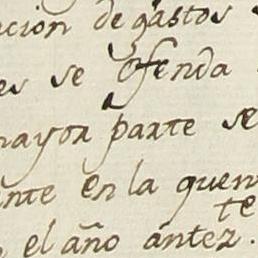 cion de gastos
es se ofenda
mayor parte se
nte en la quen
te
el año ántez.